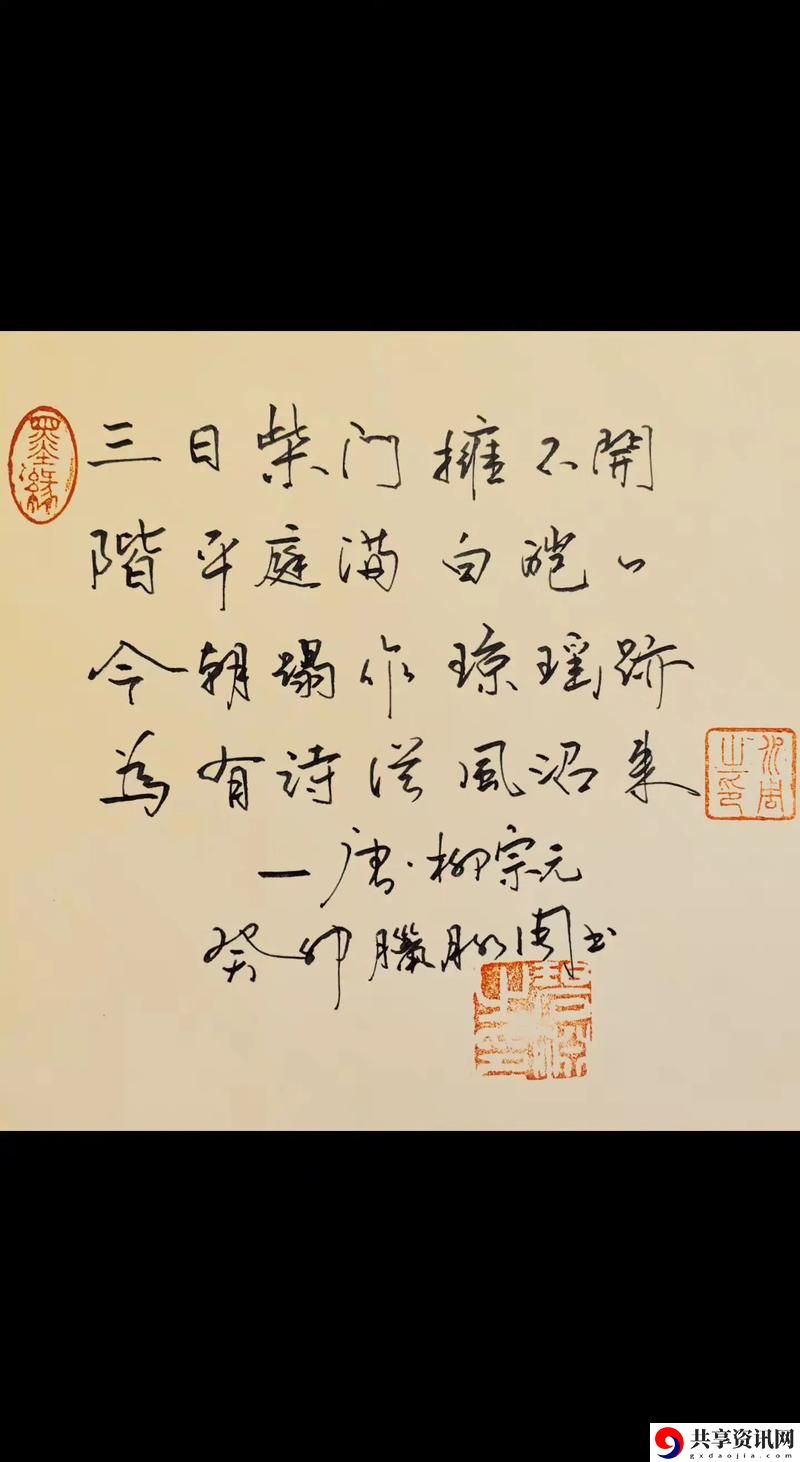 墨緣
三日柴门擁不開
階平庭满白皑々
今朝蹋作琼瑶跡
為有詩從風沼来
—唐·柳宗元
癸卯臘月周书
共享资讯网
gxdaojia.com